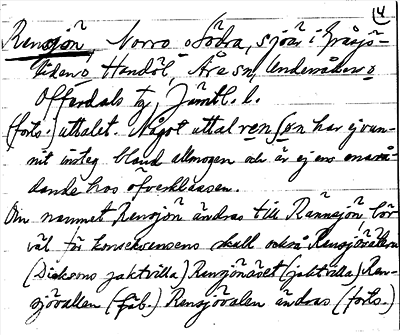 4
Rensjön, Norra o Södra, sjöar i Gråsjö-
liden o Handöl, Åre sn, Undersåkers o
Offerdals tg, Jämtl. l.
(forts. uttalet. Något uttal rensøn har ej vun-
nit insteg bland allmogen och är ej ens enarå-
dande hos öfverklassen.
Om namnet Rensjön ändras till Rännsjön, bör
väl för konsekvensens skull också Rensjövallen
(Dicksons jaktvilla) Rensjönäset (jaktvilla) Ren-
sjövallen (fäb.) Rensjövalen ändras (forts.)